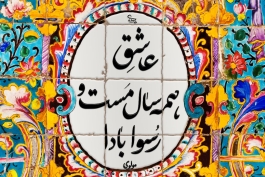 عاشق
همه سال مست و
رسوا بادا